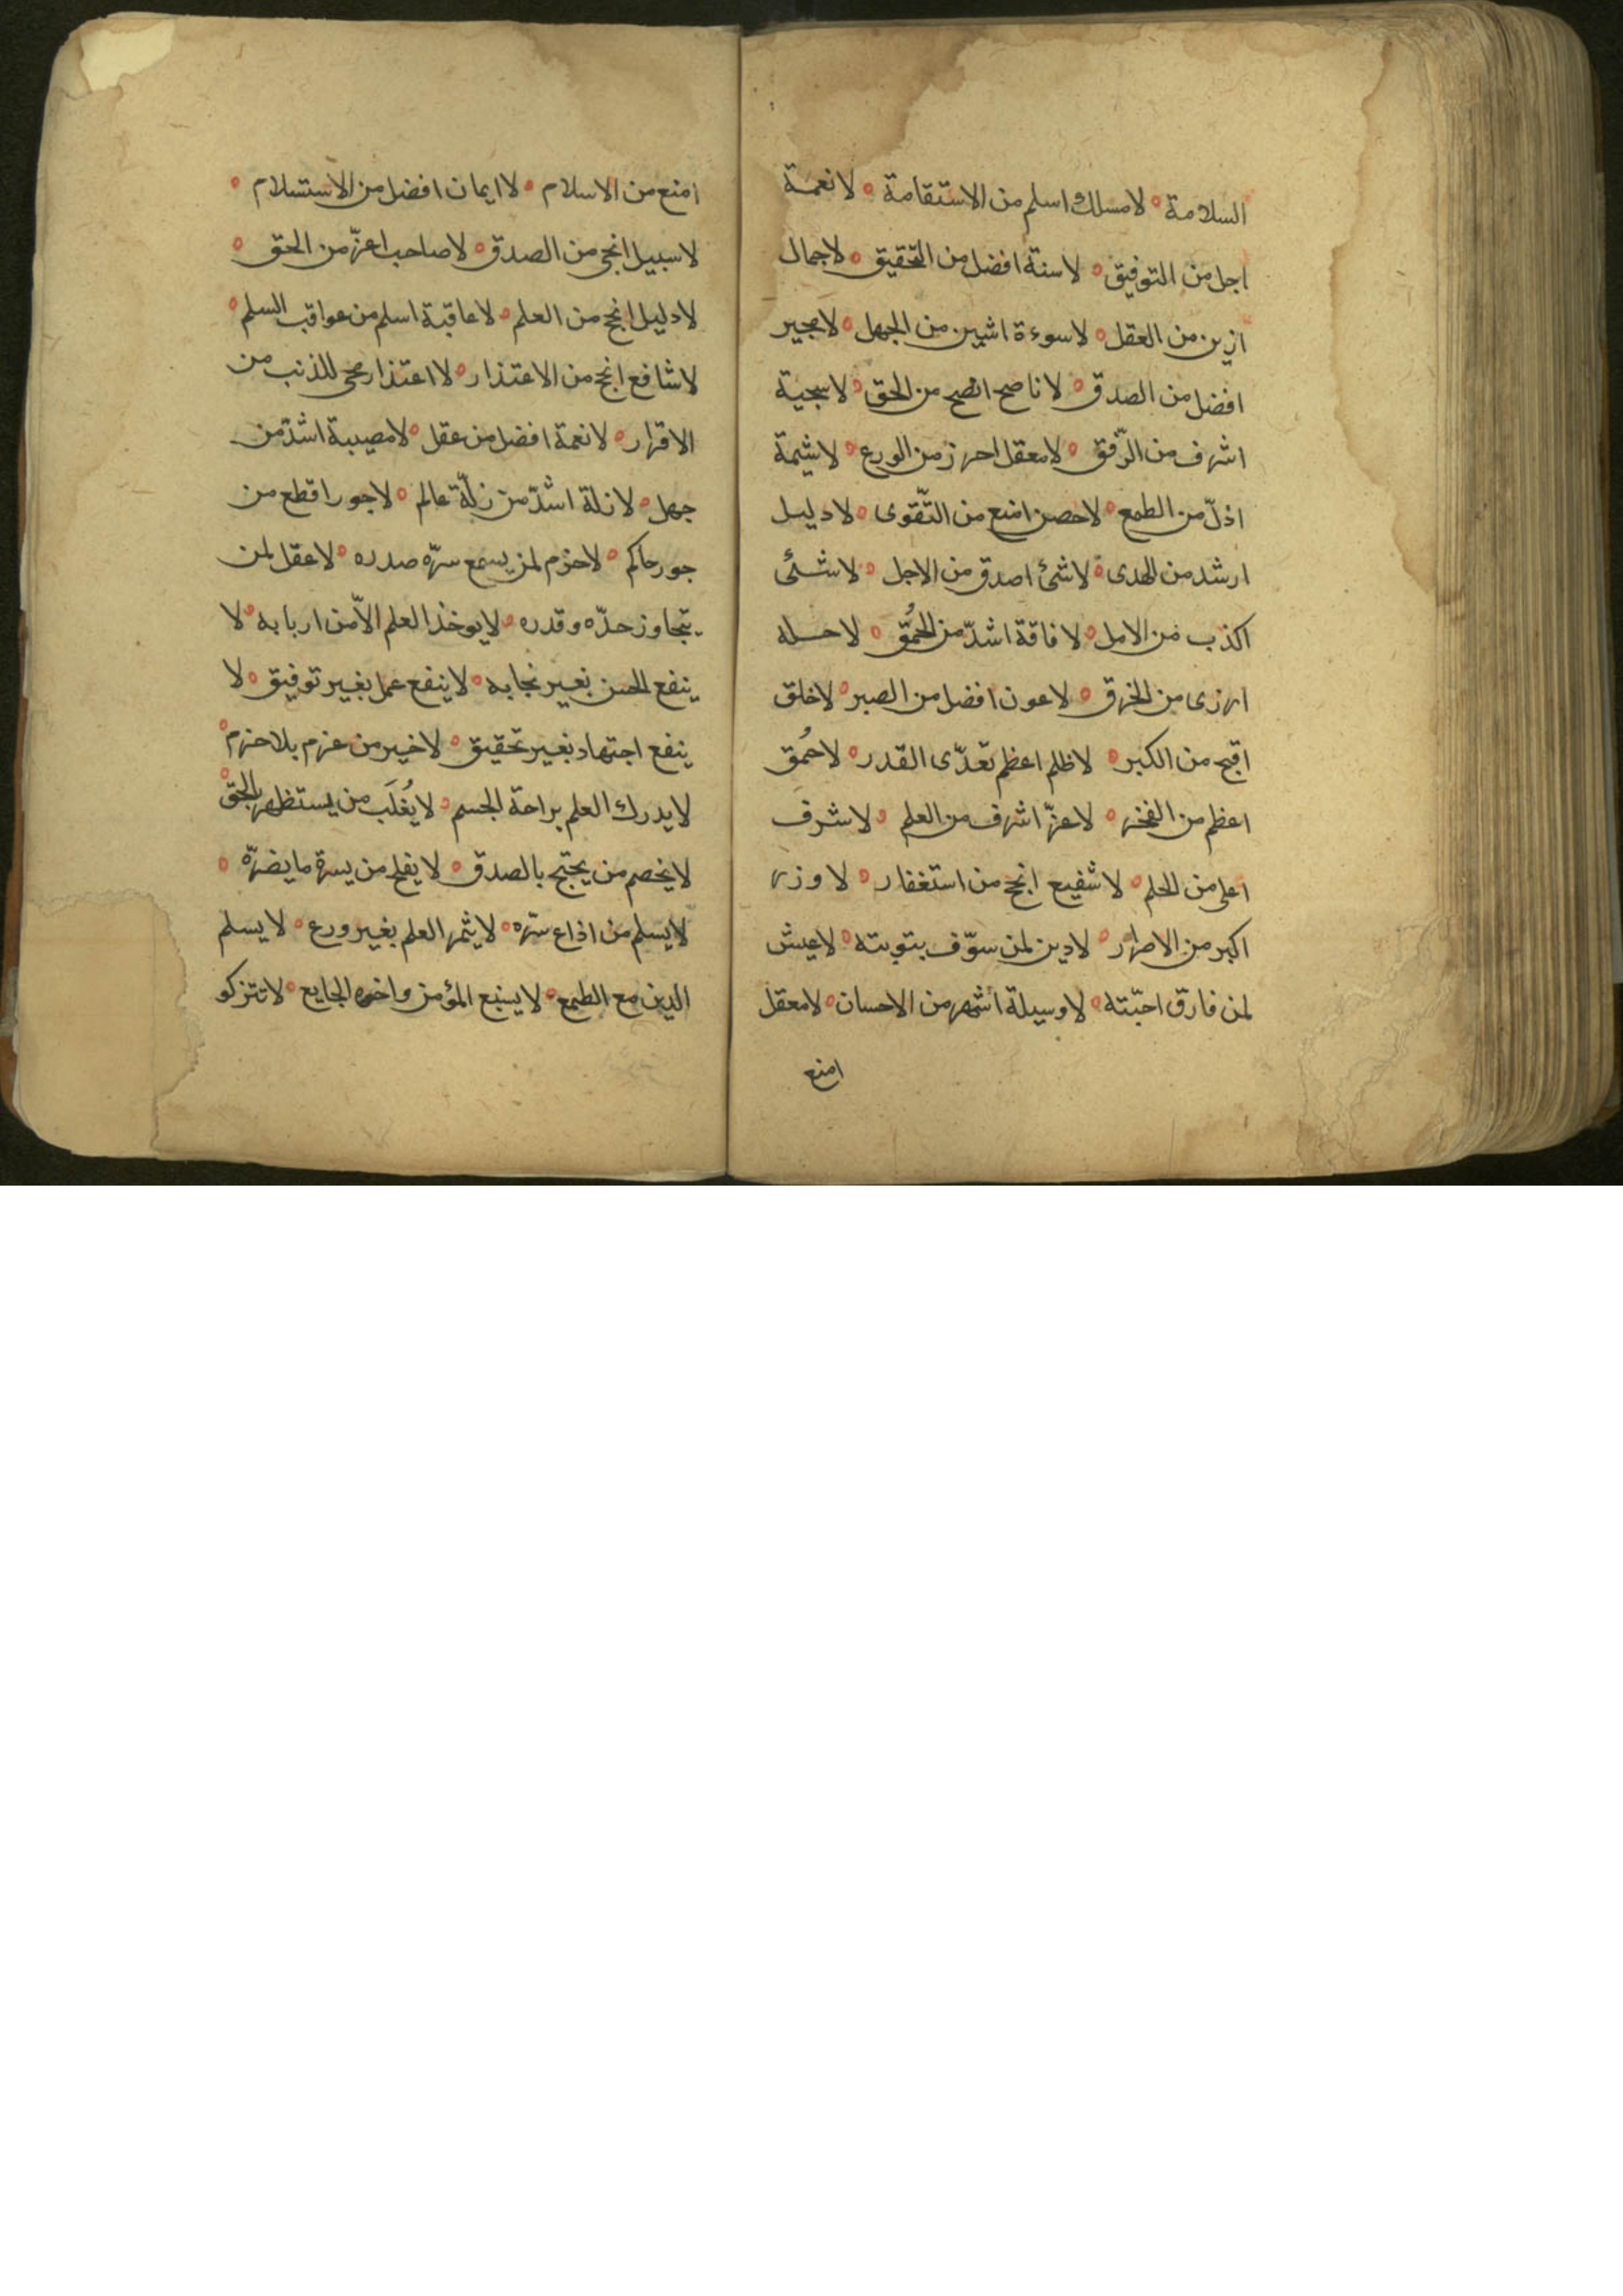 السلامة ه لا مسلك اسلم من الاستقامة ه لا نعمة
اجل من التوفيق ه لا سنة افضل من التحقيق ه لا جمال
ازين من العقل ه لا سوءة اشين من الجهل ه لا مجير
افضل من الصدق ه لا ناصح انصح من الحق ه لا سجية
اشرف من الرّفق ه لا معقل احرز من الورع ه لا شيمة
اذلّ من الطمع ه لا حصن امنع من التّقوى ه لا دليل
ارشد من الهدى ه لا شئ اصدق من الاجل ه لا شئ
اكذب من الامل ه لا فاقة اشدّ من الحُمق ه لا
ازرى من الخرق ه لا عون افضل من الصبر ه لا خلق
اقبح من الكبر ه لا ظلم اعظم تعدّى القدر ه لا حُمق
اعظم من الفخر ه لا عزّ اشرف من العلم ه لا شرف
اعلى من الحلم ه لا شفيع انجح من استغفار ه لا وزر
اكبر من الاصرار ه لا دين لمن سوّف بتوبته ه لا عيش
لمن فارق احبّته ه لا وسيلة اشهر من الاحسان ه لا معقل
امنع
امنع من الاسلام ه لا ايمان افضل من الاستسلام ه
لا سبيل انجى من الصدق ه لا صاحب اعزّ من الحق ه
لا دليل انجح من العلم ه لا عاقبة اسلم من عواقب السلم ه
لا شافع انجح من الاعتذار ه لا اعتذار محى للذنب من
الاقرار ه لا نعمة افضل من عقل ه لا مصيبة اشدّ من
جهل ه لا زلة اشدّ من زلّة عالم ه لا جور اقطع من
جور حاكم ه لا حزم لمن يسع سرّه صدره ه لا عقل لمن
يتجاوز حدّه وقدره ه لا يوخذ العلم الاّ من اربابه ه لا
ينفع الحسن بغير نجابه ه لا ينفع عمل بغير توفيق ه لا
ينفع اجتهاد بغير تحقيق ه لا خير من عزم بلا حزم ه
لا يدرك العلم براحة الجسم ه لا يُغلَب من يستظهر بالحق ه
لا يخصم من يحتج بالصدق ه لا يفلح من يسرّه ما يضرّه ه
لا يسلم من اذاع سرّه ه لا يثمر العلم بغير ورع ه لا يسلم
الدين مع الطمع ه لا يشبع المؤمن واخوه الجايع ه لا تتزكو